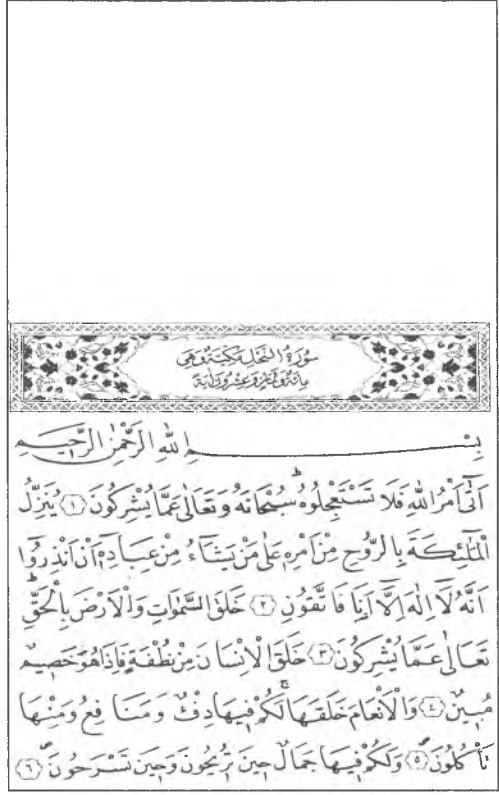 سُورَةُ النَّحْلِ مَكِّيَّةٌ وَهِيَ
مِائَةٌ وَثَمَانٍ وَعِشْرُونَ آيَةً
بِسْمِ اللهِ الرَّحْمٰنِ الرَّحِيمِ
اَتٰٓى اَمْرُ اللهِ فَلَا تَسْتَعْجِلُوهُ سُبْحَانَهُ وَتَعَالٰى عَمَّا يُشْرِكُونَ ﴿١﴾ يُنَزِّلُ
الْمَلٰٓئِكَةَ بِالرُّوحِ مِنْ اَمْرِهٖ عَلٰى مَنْ يَشَٓاءُ مِنْ عِبَادِهٖٓ اَنْ اَنْذِرُٓوا
اَنَّهُ لَٓا اِلٰهَ اِلَّٓا اَنَا۬ فَاتَّقُونِ ﴿٢﴾ خَلَقَ السَّمٰوَاتِ وَالْاَرْضَ بِالْحَقِّ
تَعَالٰى عَمَّا يُشْرِكُونَ ﴿٣﴾ خَلَقَ الْاِنْسَانَ مِنْ نُطْفَةٍ فَاِذَا هُوَ خَصِيمٌ
مُبِينٌ ﴿٤﴾ وَالْاَنْعَامَ خَلَقَهَا لَكُمْ فِيهَا دِفْءٌ وَمَنَافِعُ وَمِنْهَا
تَأْكُلُونَ ﴿٥﴾ وَلَكُمْ فِيهَا جَمَالٌ حِينَ تُرِيحُونَ وَحِينَ تَسْرَحُونَ ﴿٦﴾